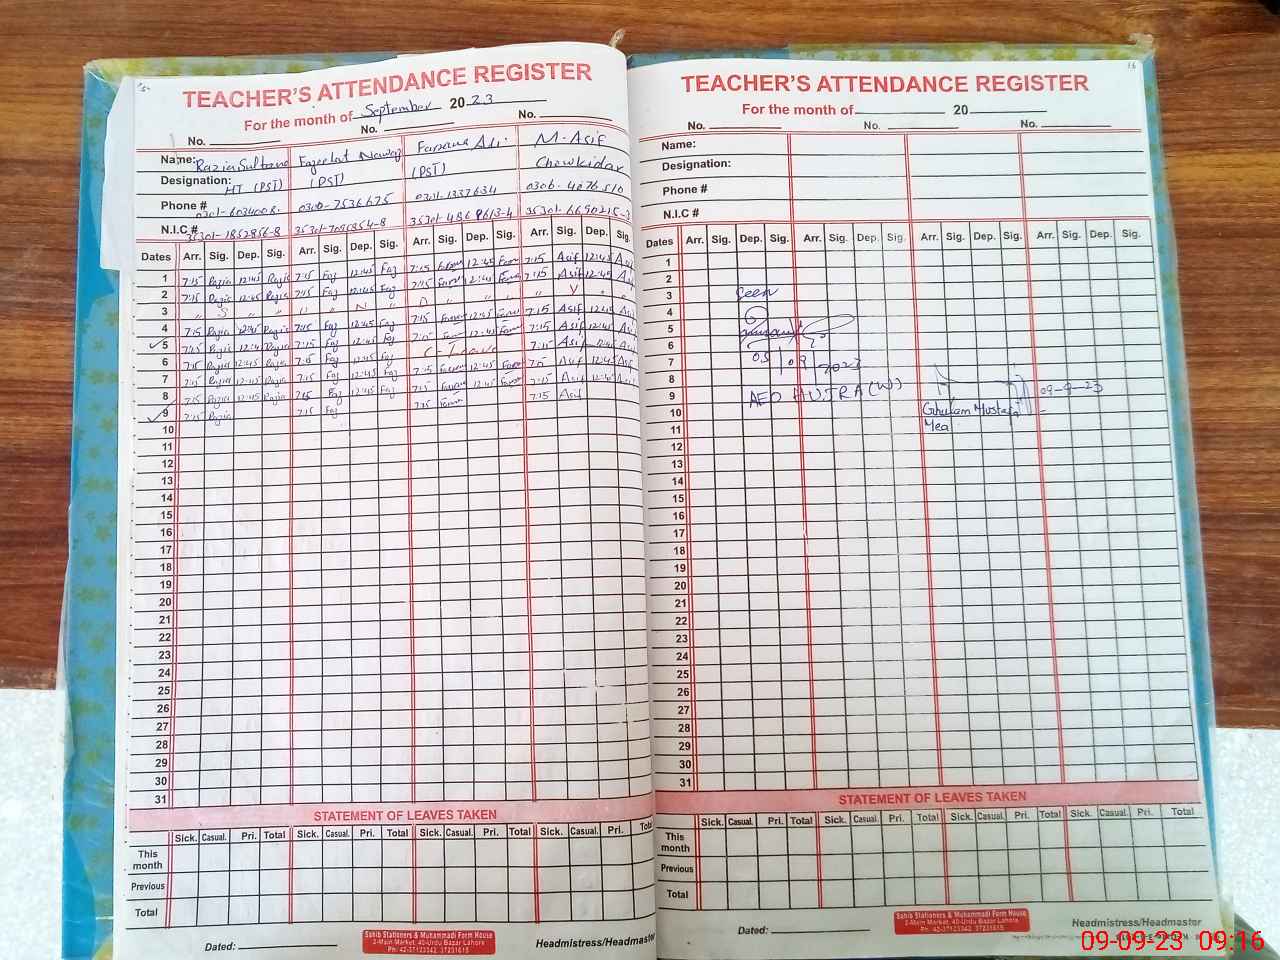 TEACHER'S ATTENDANCE REGISTER
For the month of September 20 23
No. No. No.
Name: Razia Sultana Fazeelat Nawaz Farzana Ali M. Asif
Designation: HT (PST) (PST) (PST) Chowkidar
Phone # 0300-7536675 0301-1337634
N.I.C # 35301-1852856-8
Dates Arr. Sig. Dep. Sig. Arr. Sig. Dep. Sig. Arr. Sig. Dep. Sig. Arr. Sig. Dep. Sig.
1 7:15 Razia 12:45 Razia 7:15 Faz 12:45 Faz 7:15 12:45 7:15 Asif 12:45
2 7:15 Razia 12:45 Razia 7:15 Faz 12:45 Faz 7:15 12:45 7:15 Asif 12:45
3 " S " U " N " D " " A " Y " "
4 7:15 Razia 12:45 Razia 7:15 Faz 12:45 Faz 7:15 12:45 7:15 Asif 12:45
5 7:15 Razia 12:45 Razia 7:15 Faz 12:45 Faz 7:15 12:45 7:15 Asif 12:45
6 7:15 Razia 12:45 Razia 7:15 Faz 12:45 Faz C-Leave 7:15 Asif 12:45
7 7:15 Razia 12:45 Razia 7:15 Faz 12:45 Faz 7:15 12:45 7:15 Asif 12:45
8 7:15 Razia 12:45 Razia 7:15 Faz 12:45 Faz 7:15 12:45 7:15 Asif 12:45
9 7:15 Razia 7:15 Faz 7:15 7:15 Asif
10
11
12
13
14
15
16
17
18
19
20
21
22
23
24
25
26
27
28
29
30
31
STATEMENT OF LEAVES TAKEN
Sick. Casual. Pri. Total Sick. Casual. Pri. Total Sick. Casual. Pri. Total Sick. Casual. Pri. Total
This month
Previous
Total
Dated:
Sahib Stationers & Muhammadi Form House
2-Main Market, 40-Urdu Bazar Lahore
Ph: 42-37123342 37231615
Headmistress/Headmaster
16
TEACHER'S ATTENDANCE REGISTER
For the month of 20
No. No. No.
Name:
Designation:
Phone #
N.I.C #
Dates Arr. Sig. Dep. Sig. Arr. Sig. Dep. Sig. Arr. Sig. Dep. Sig. Arr. Sig. Dep. Sig.
1
2
3 Seen
4
5
6
7 05/09/2023
8
9 AEO HUJRA (W) 09-9-23
10 Ghulam Mustafa
11 Mea
12
13
14
15
16
17
18
19
20
21
22
23
24
25
26
27
28
29
30
31
STATEMENT OF LEAVES TAKEN
Sick. Casual. Pri. Total Sick. Casual. Pri. Total Sick. Casual. Pri. Total Sick. Casual. Pri. Total
This month
Previous
Total
Dated:
Sahib Stationers & Muhammadi Form House
2-Main Market, 40-Urdu Bazar Lahore
Ph: 42-37123342 37231615
Headmistress/Headmaster
09-09-23 09:16